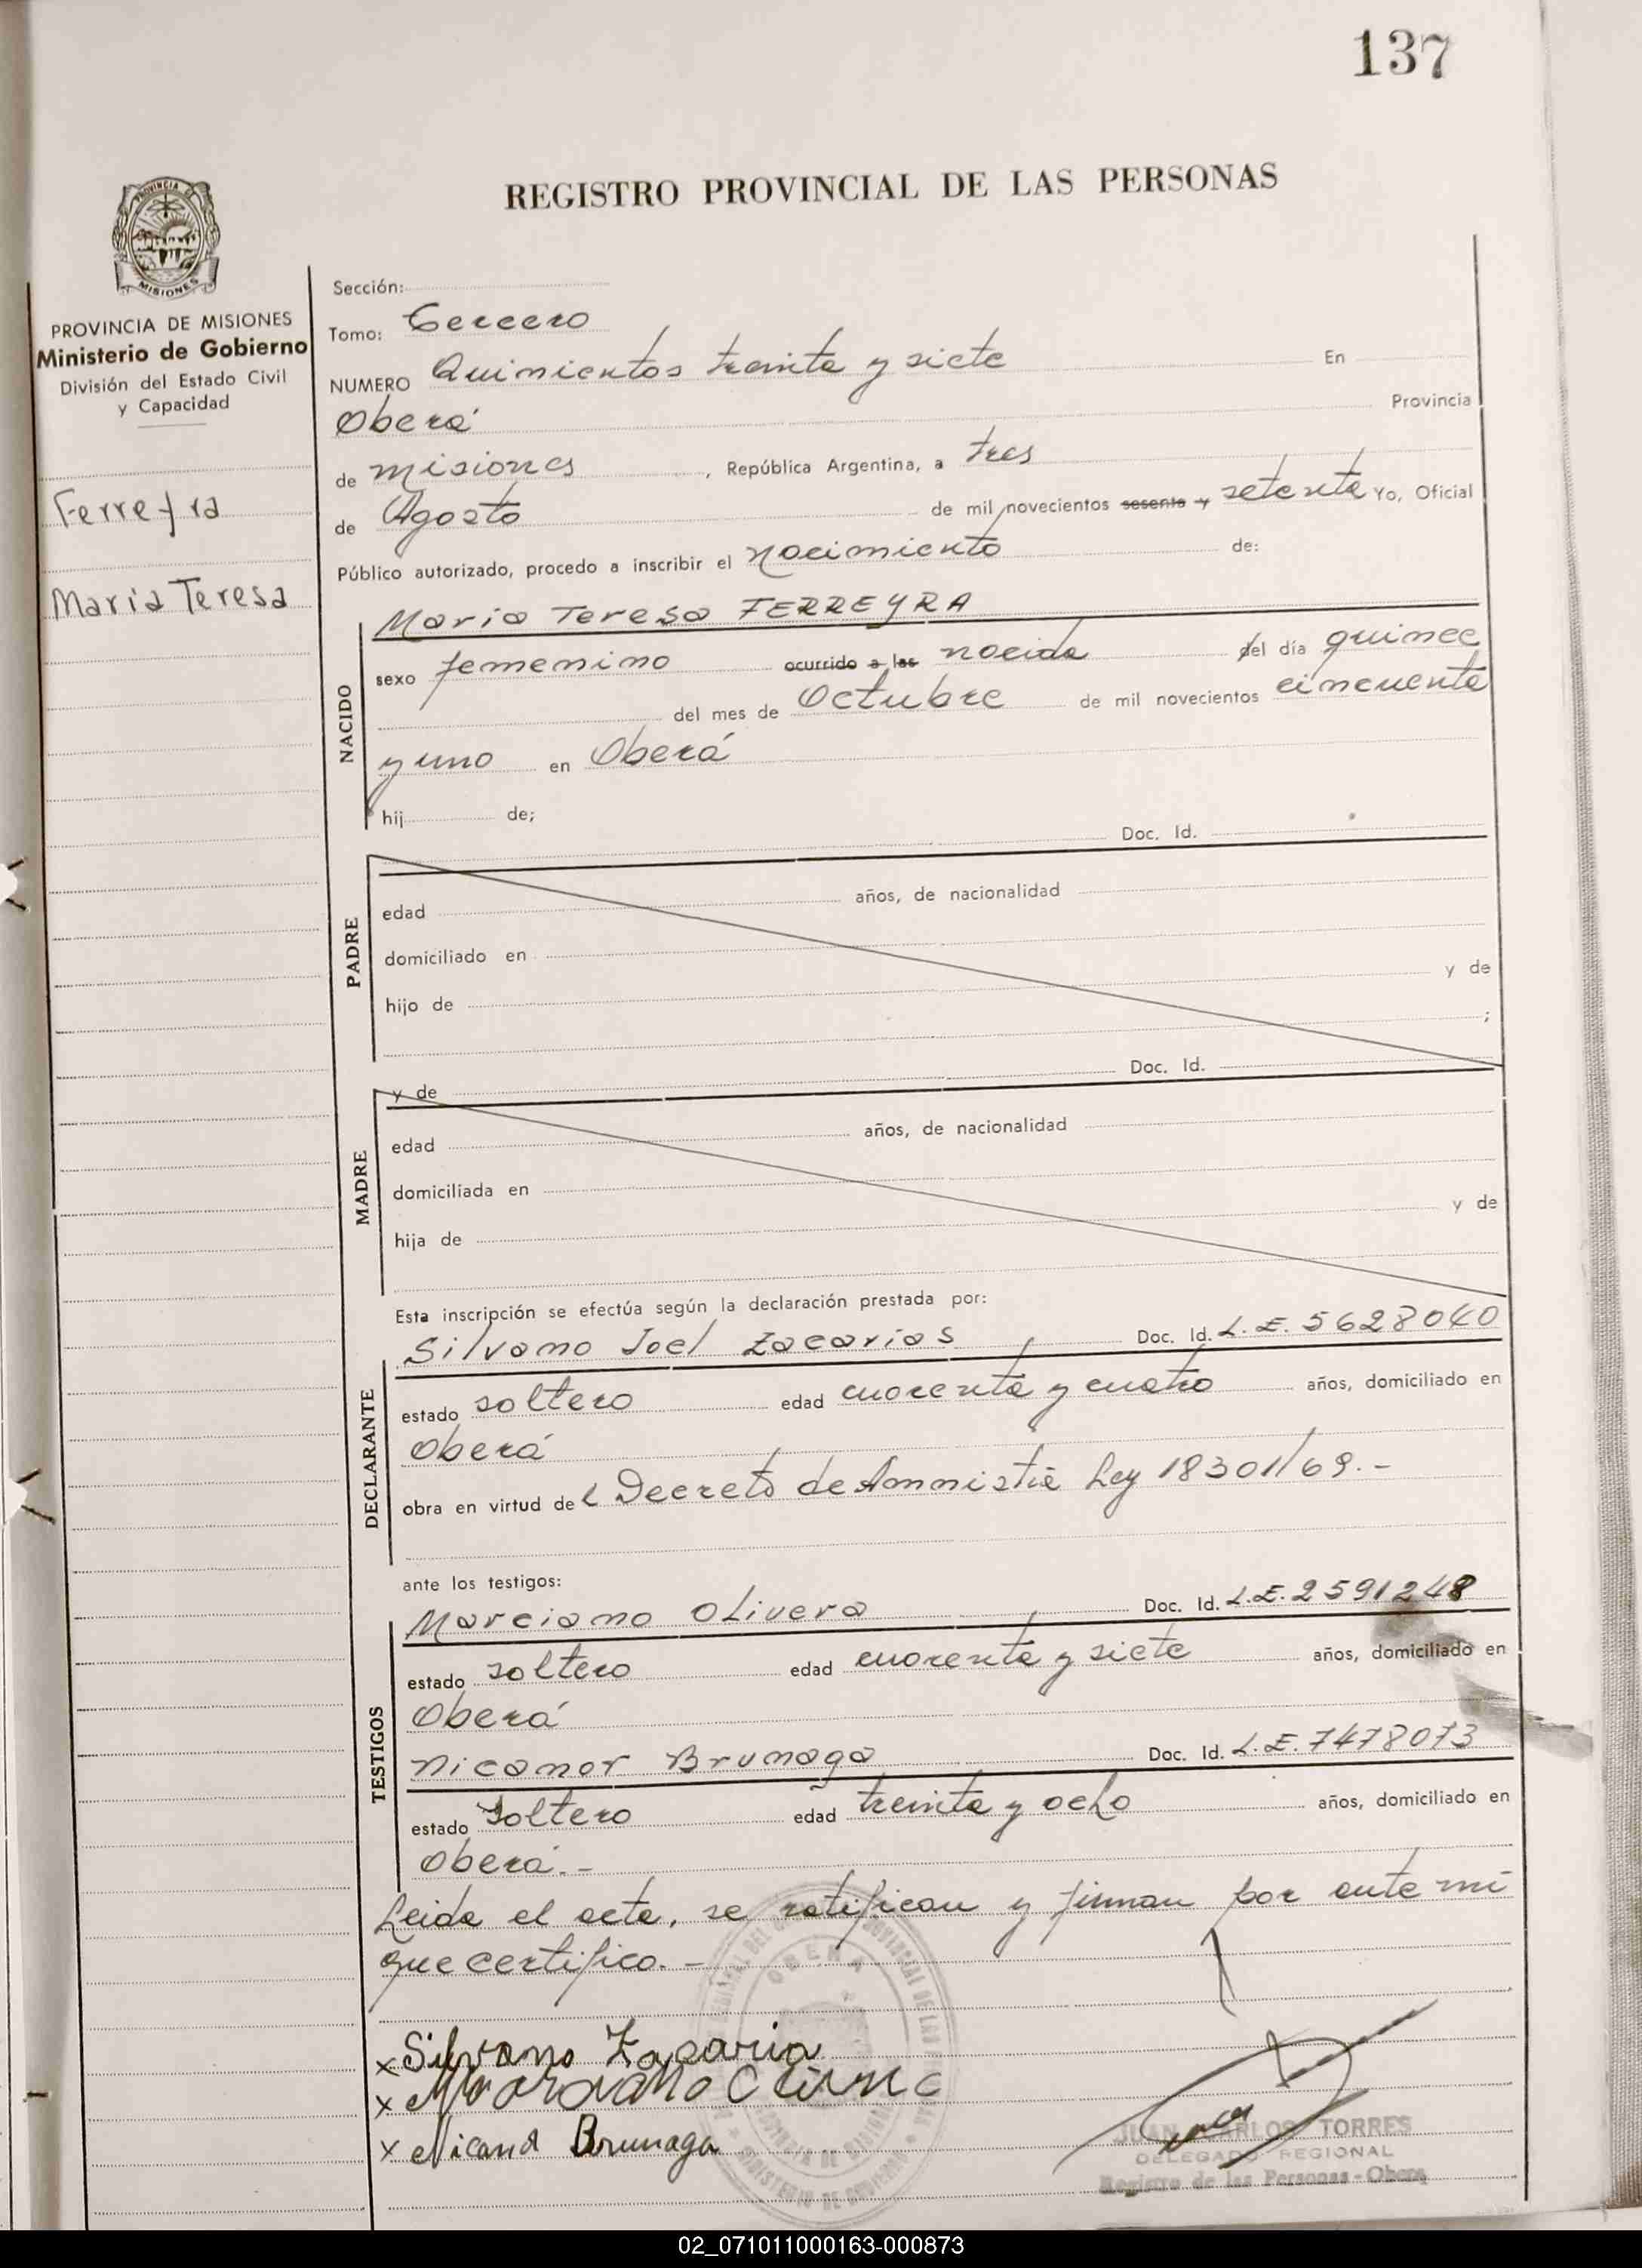 137
REGISTRO PROVINCIAL DE LAS PERSONAS
PROVINCIA DE MISIONES
Ministerio de Gobierno
División del Estado Civil
y Capacidad
Ferreyra
Maria Teresa
Sección:
Tomo: Tercero
NUMERO Quinientos treinta y siete En
Oberá Provincia
de misiones, República Argentina, a tres
de Agosto de mil novecientos sesenta y setenta Yo, Oficial
Público autorizado, procedo a inscribir el nacimiento de:
Maria Teresa FERREYRA
NACIDO
sexo femenino ocurrido a las nacida del día quince
del mes de Octubre de mil novecientos cincuenta
y uno en Oberá
hij de;
Doc. Id.
PADRE
edad años, de nacionalidad
domiciliado en
hijo de y de
;
Doc. Id.
y de
MADRE
edad años, de nacionalidad
domiciliada en
hija de y de
Esta inscripción se efectúa según la declaración prestada por:
Silvano Joel Zacarias Doc. Id. L.E. 5628040
DECLARANTE
estado soltero edad cuarenta y cuatro años, domiciliado en
Oberá
obra en virtud del Decreto de Amnistia Ley 18301/69.-
ante los testigos:
Marciano Olivera Doc. Id. L.E. 2591248
TESTIGOS
estado soltero edad cuarenta y siete años, domiciliado en
Oberá
Nicanor Brunaga Doc. Id. L.E. 7478073
estado soltero edad treinta y ocho años, domiciliado en
Oberá.-
Leida el acta, se ratifican y firman por ante mi
que certifico.-
x Silvano Zacaria
x
x Nicanor Brunaga
OBERA
JUAN CARLOS TORRES
DELEGADO REGIONAL
Registro de las Personas - Oberá
02_071011000163-000873